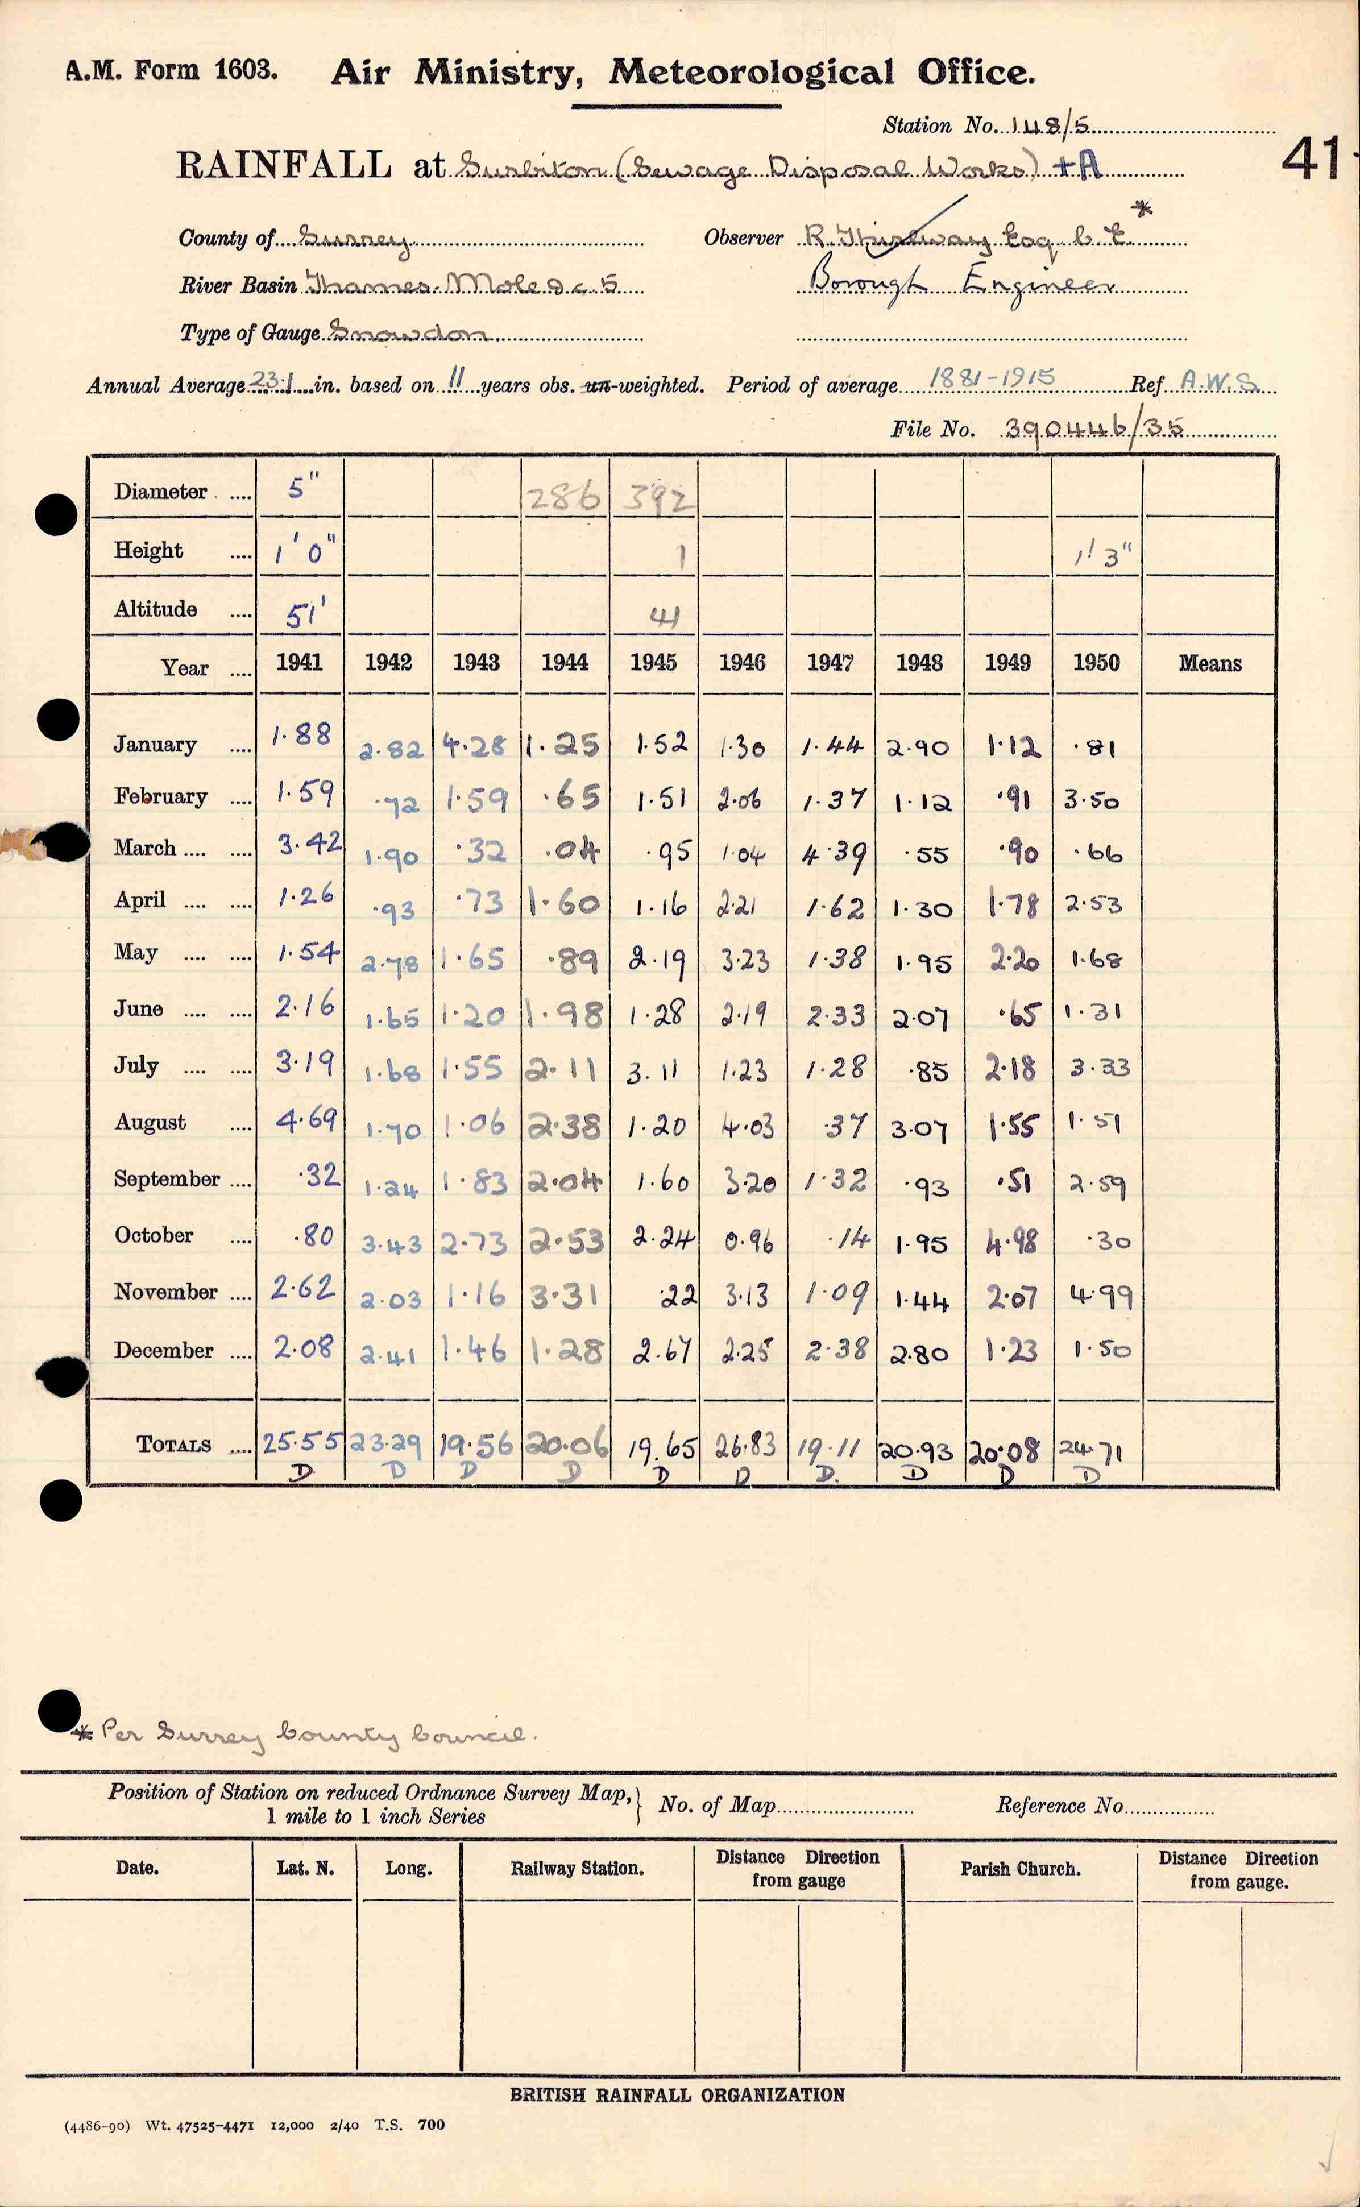 A.M. Form 1603. Air Ministry, Meteorological Office.
Station No. 148/5
41
RAINFALL at Surbiton (Sewage Disposal Works) +A
County of Surrey Observer R. Thirlway Esq C.E. *
River Basin Thames. Mole &c. 5 Borough Engineer
Type of Gauge Snowdon.
Annual Average 23.1 in. based on 11 years obs. un-weighted. Period of average 1881-1915 Ref. A.W.S.
File No. 390446/35
Diameter .... 5" 286 392
Height .... 1' 0" 1 1' 3"
Altitude .... 51' 41
Year .... 1941 1942 1943 1944 1945 1946 1947 1948 1949 1950 Means
January .... 1.88 2.82 4.28 1.25 1.52 1.30 1.44 2.90 1.12 .81
February .... 1.59 .72 1.59 .65 1.51 2.06 1.37 1.12 .91 3.50
March .... .... 3.42 1.90 .32 .04 .95 1.04 4.39 .55 .90 .66
April .... .... 1.26 .93 .73 1.60 1.16 2.21 1.62 1.30 1.78 2.53
May .... .... 1.54 2.78 1.65 .89 2.19 3.23 1.38 1.95 2.20 1.68
June .... .... 2.16 1.65 1.20 1.98 1.28 2.19 2.33 2.07 .65 1.31
July .... .... 3.19 1.68 1.55 2.11 3.11 1.23 1.28 .85 2.18 3.33
August .... 4.69 1.70 1.06 2.38 1.20 4.03 .37 3.07 1.55 1.51
September .... .32 1.24 1.83 2.04 1.60 3.20 1.32 .93 .51 2.59
October .... .80 3.43 2.73 2.53 2.24 0.96 .14 1.95 4.98 .30
November .... 2.62 2.03 1.16 3.31 .22 3.13 1.09 1.44 2.07 4.99
December .... 2.08 2.41 1.46 1.28 2.67 2.25 2.38 2.80 1.23 1.50
TOTALS .... 25.55 23.29 19.56 20.06 19.65 26.83 19.11 20.93 20.08 24.71
D D D D D D D. D D D
* Per Surrey County Council.
Position of Station on reduced Ordnance Survey Map, } No. of Map Reference No.
1 mile to 1 inch Series
Date. Lat. N. Long. Railway Station. Distance Direction from gauge Parish Church. Distance Direction from gauge.
BRITISH RAINFALL ORGANIZATION
(4486-90) Wt. 47525-4471 12,000 2/40 T.S. 700